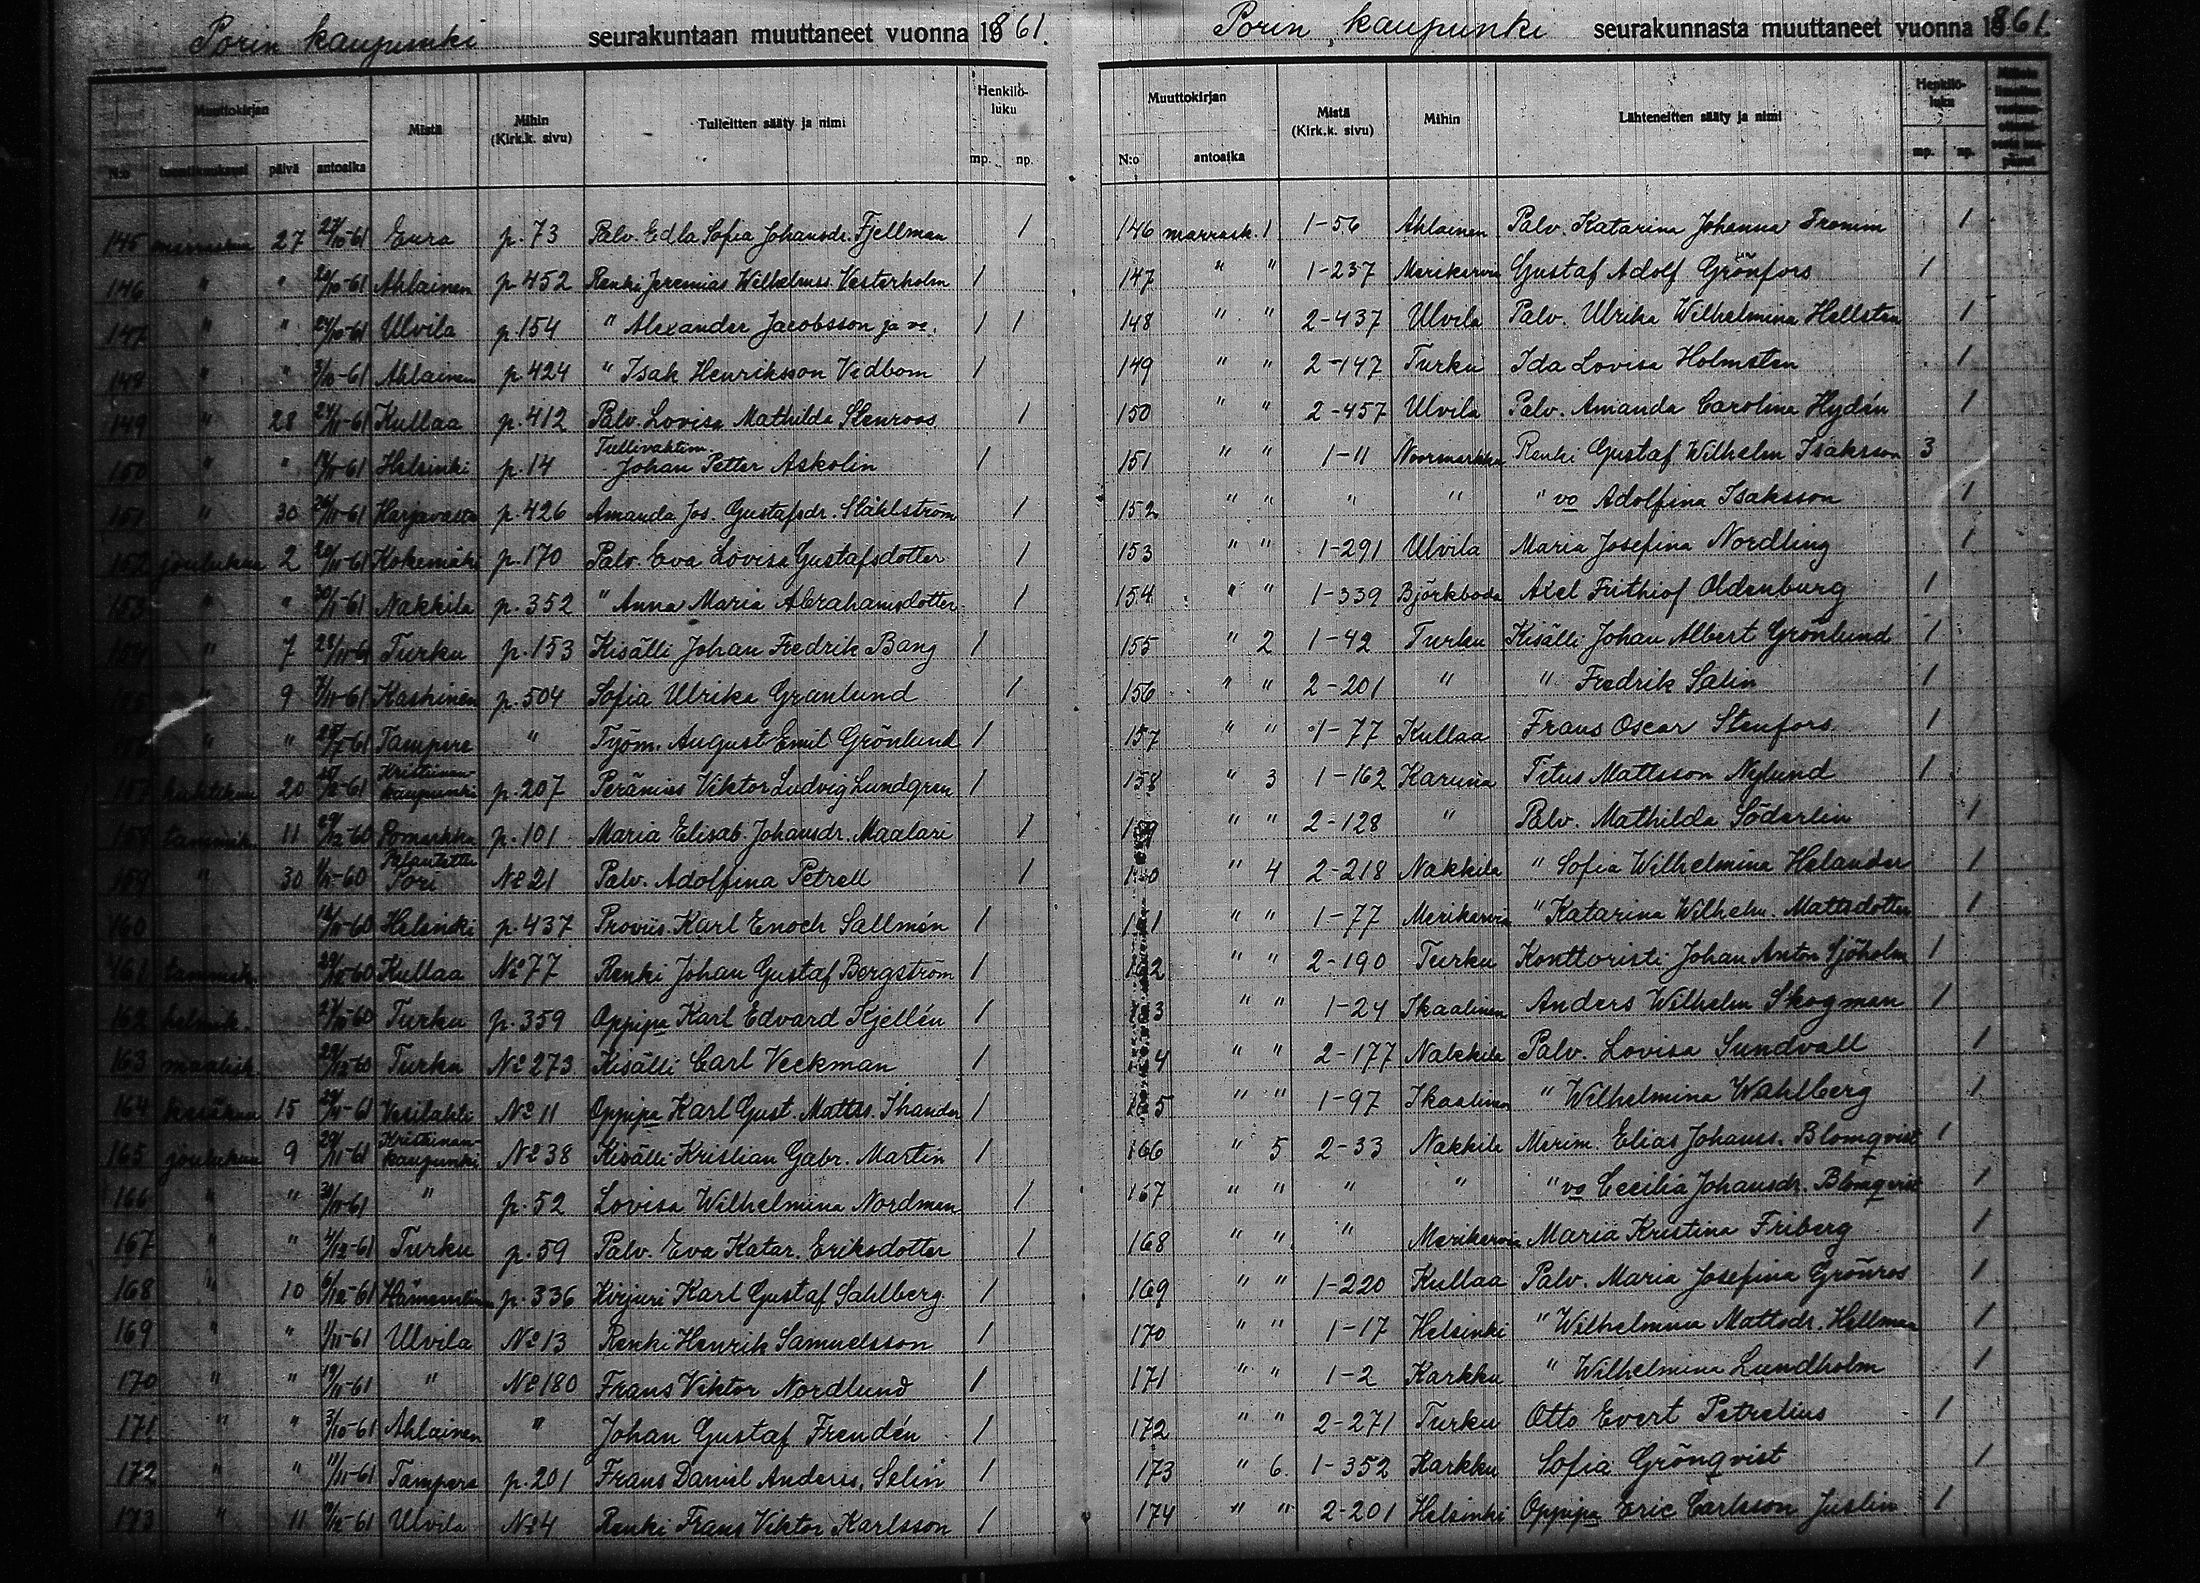 Porin kaupunki seurakuntaan muuttaneet vuonna 1861.
Muuttokirjan Mistä Mihin (Kirk.k. sivu) Tulleitten sääty ja nimi Henkilöluku
N:o päivä antoaika mp. np.
145 27 Eura p. 73 Palv. Edla Sofia Johansdr. Fjellman 1
146 " " Ahlainen p. 452 Renki Jeremias Wilhelmss. Vesterholm 1
147 " " Ulvila p. 154 " Alexander Jacobsson ja vo. 1 1
148 " " Ahlainen p. 424 " Isak Henriksson Vidbom 1
149 " 28 Kullaa p. 412 Palv. Lovisa Mathilda Stenroos 1
150 " " Helsinki p. 14 Tullivahtim. Johan Petter Askolin 1
151 " 30 Harjavalta p. 426 Amanda Jos. Gustafsdr. Ståhlström 1
152 joulukuu 2 Kokemäki p. 170 Palv. Eva Lovisa Gustafsdotter 1
153 " " Nakkila p. 352 " Anna Maria Abrahamsdotter 1
154 " 7 Turku p. 153 Kisälli Johan Fredrik Bang 1
155 9 Kaskinen p. 504 Sofia Ulrika Granlund 1
" " Tampere " Työm. August Emil Grönlund 1
157 huhtikuu 20 Kristiinankaupunki p. 207 Perämies Viktor Ludvig Lundgren 1
158 tammik. 11 29/12-60 Pomarkku p. 101 Maria Elisab. Johansdr. Maalari 1
159 " 30 Pori No 21 Palv. Adolfina Petrell 1
160 Helsinki p. 437 Proviis. Karl Enoch Sallmén 1
161 tammik. Kullaa No 77 Renki Johan Gustaf Bergström 1
162 helmik. Turku p. 359 Oppipa Karl Edvard Kjellén 1
163 maalisk. Turku No 273 Kisälli Carl Veckman 1
164 kesäkuu 15 Vesilahti No 11 Oppipa Karl Gust. Matts. Ihander 1
165 jouluk 9 29/11-61 Kristiinankaupunki No 38 Kisälli Kristian Gabr. Martin 1
166 " " " p. 52 Lovisa Wilhelmina Nordman 1
167 " " 4/12-61 Turku p. 59 Palv. Eva Katar. Eriksdotter 1
168 " 10 6/12-61 Hämeenlinna p. 336 Kirjuri Karl Gustaf Sahlberg 1
169 " " Ulvila No 13 Renki Henrik Samuelsson 1
170 " " 19/11-61 " No 180 Frans Viktor Nordlund 1
171 " " 3/10-61 Ahlainen " Johan Gustaf Frendén 1
172 " " 11/11-61 Tampere p. 201 Frans Daniel Anderss. Selin 1
173 " 11 Ulvila No 4 Renki Frans Viktor Karlsson 1
Porin kaupunki seurakunnasta muuttaneet vuonna 1861.
Muuttokirjan Mistä (Kirk.k. sivu) Mihin Lähteneitten sääty ja nimi Henkilöluku
N:o antoaika mp. np.
146 marrask. 1 1-56 Ahlainen Palv. Katarina Johanna Fromm 1
147 " " 1-237 Merikarvia Gustaf Adolf Grönfors 1
148 " " 2-437 Ulvila Palv. Ulrika Wilhelmina Hellsten 1
149 " " 2-147 Turku Ida Lovisa Holmsten 1
150 " " 2-457 Ulvila Palv. Amanda Carolina Hydén 1
151 " " 1-11 Noormarkku Renki Gustaf Wilhelm Isaksson 3
152 " " " " " vo Adolfina Isaksson 1
153 " " 1-291 Ulvila Maria Josefina Nordling 1
154 " " 1-339 Björkboda Axel Frithiof Oldenburg 1
155 " 2 1-42 Turku Kisälli Johan Albert Grönlund 1
156 " " 2-201 " " Fredrik Salin 1
157 " " 1-77 Kullaa Frans Oscar Stenfors 1
158 " 3 1-162 Karuna Titus Mattsson Nylund 1
159 " " 2-128 " Palv. Mathilda Söderlin 1
160 " 4 2-218 Nakkila " Sofia Wilhelmina Helander 1
161 " " 1-77 Merikarvia " Katarina Wilhelm. Mattsdotter 1
162 " " 2-190 Turku Konttoristi Johan Anton Sjöholm 1
163 " " 1-24 Ikaalinen Anders Wilhelm Skogman 1
164 " " 2-177 Nakkila Palv. Lovisa Sundvall 1
165 " " 1-97 Ikaalinen " Wilhelmina Wahlberg 1
166 " 5 2-33 Nakkila Merim. Elias Johanss. Blomqvist 1
167 " " " " " vo Cecilia Johansdr. Blomqvist 1
168 " " " Merikarvia Maria Kristina Friberg 1
169 " " 1-220 Kullaa Palv. Maria Josefina Grönros 1
170 " " 1-17 Helsinki " Wilhelmina Mattsdr. Hellman 1
171 " " 1-2 Karkku " Wilhelmina Lundholm 1
172 " " 2-271 Turku Otto Evert Petrelius 1
173 " 6 1-352 Karkku Sofia Grönqvist 1
174 " " 2-201 Helsinki Oppipa Eric Carlsson Juslin 1